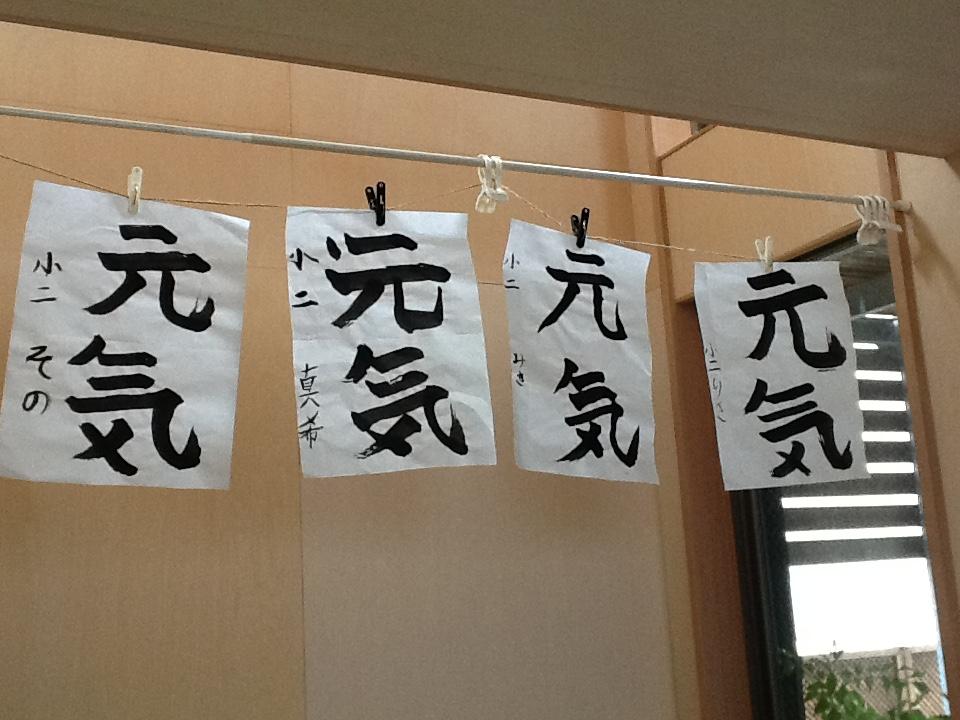 元気
小二 その
元気
小二 真希
元気
小二 みき
元気
小二 りさ